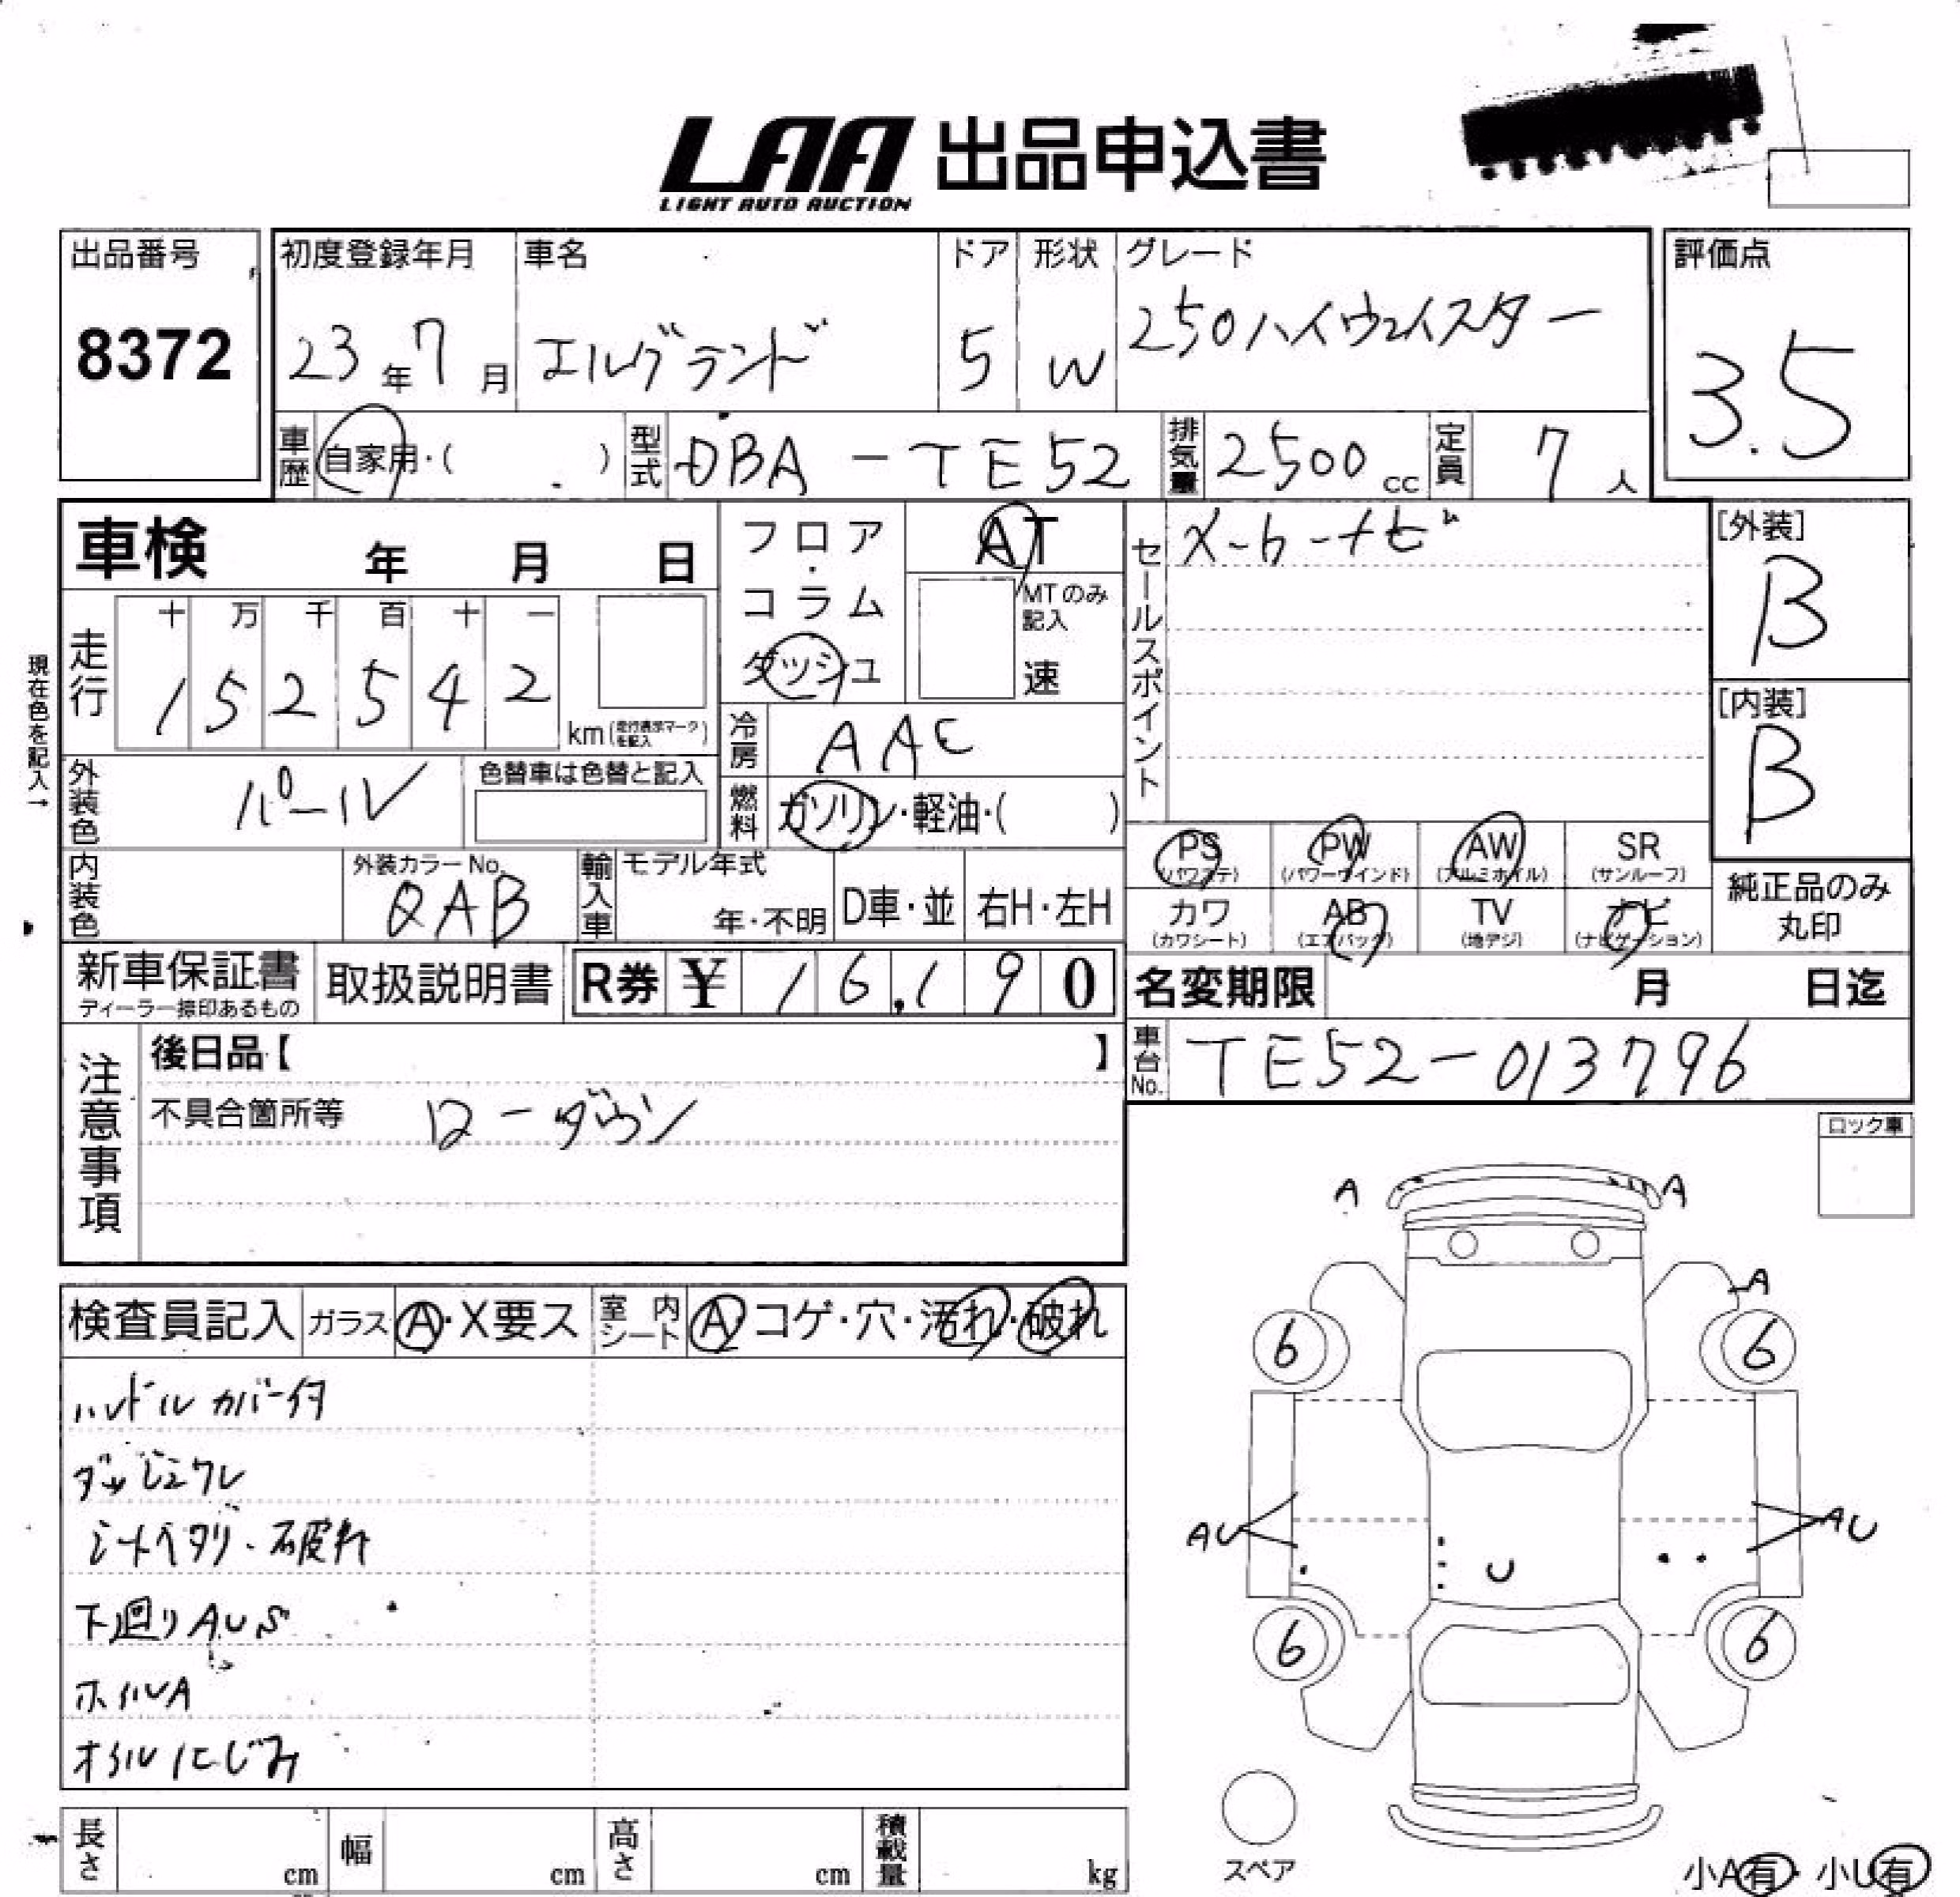 LAA 出品申込書
LIGHT AUTO AUCTION
出品番号
8372
初度登録年月
23年7月
車名
エルグランド
ドア
5
形状
W
グレード
250ハイウェイスター
評価点
3.5
車歴
自家用・( )
型式
DBA-TE52
排気量
2500cc
定員
7人
車検 年 月 日
フロア・コラム
ダッシュ
AT
MTのみ記入
速
セールスポイント
メーカーナビ
[外装]
B
[内装]
B
現在色を記入→
走行
十 万 千 百 十 一
1 5 2 5 4 2
km(走行表示マークを記入)
冷房
AAC
外装色
パール
色替車は色替と記入
燃料
ガソリン・軽油・( )
PS
(パワステ)
PW
(パワーウインド)
AW
(アルミホイル)
SR
(サンルーフ)
内装色
外装カラーNo.
QAB
輸入車
モデル年式
年・不明
D車・並
右H・左H
カワ
(カワシート)
AB
(エアバック)
TV
(地デジ)
ナビ
(ナビゲーション)
純正品のみ
丸印
新車保証書
ディーラー捺印あるもの
取扱説明書
R券 ¥ 16,190
名変期限 月 日迄
注意事項
後日品【 】
車台No.
TE52-013796
不具合箇所等 ローダウン
ロック車
A A
A
6 6
AU AU
U
6 6
検査員記入
ガラス
A・X要ス
室内シート
A・コゲ・穴・汚れ・破れ
ハンドルカバー付
ダッシュワレ
シートヘタリ・破れ
下廻りAUS
ホイルA
オイルにじみ
長さ cm
幅 cm
高さ cm
積載量 kg
スペア
小A有・小U有